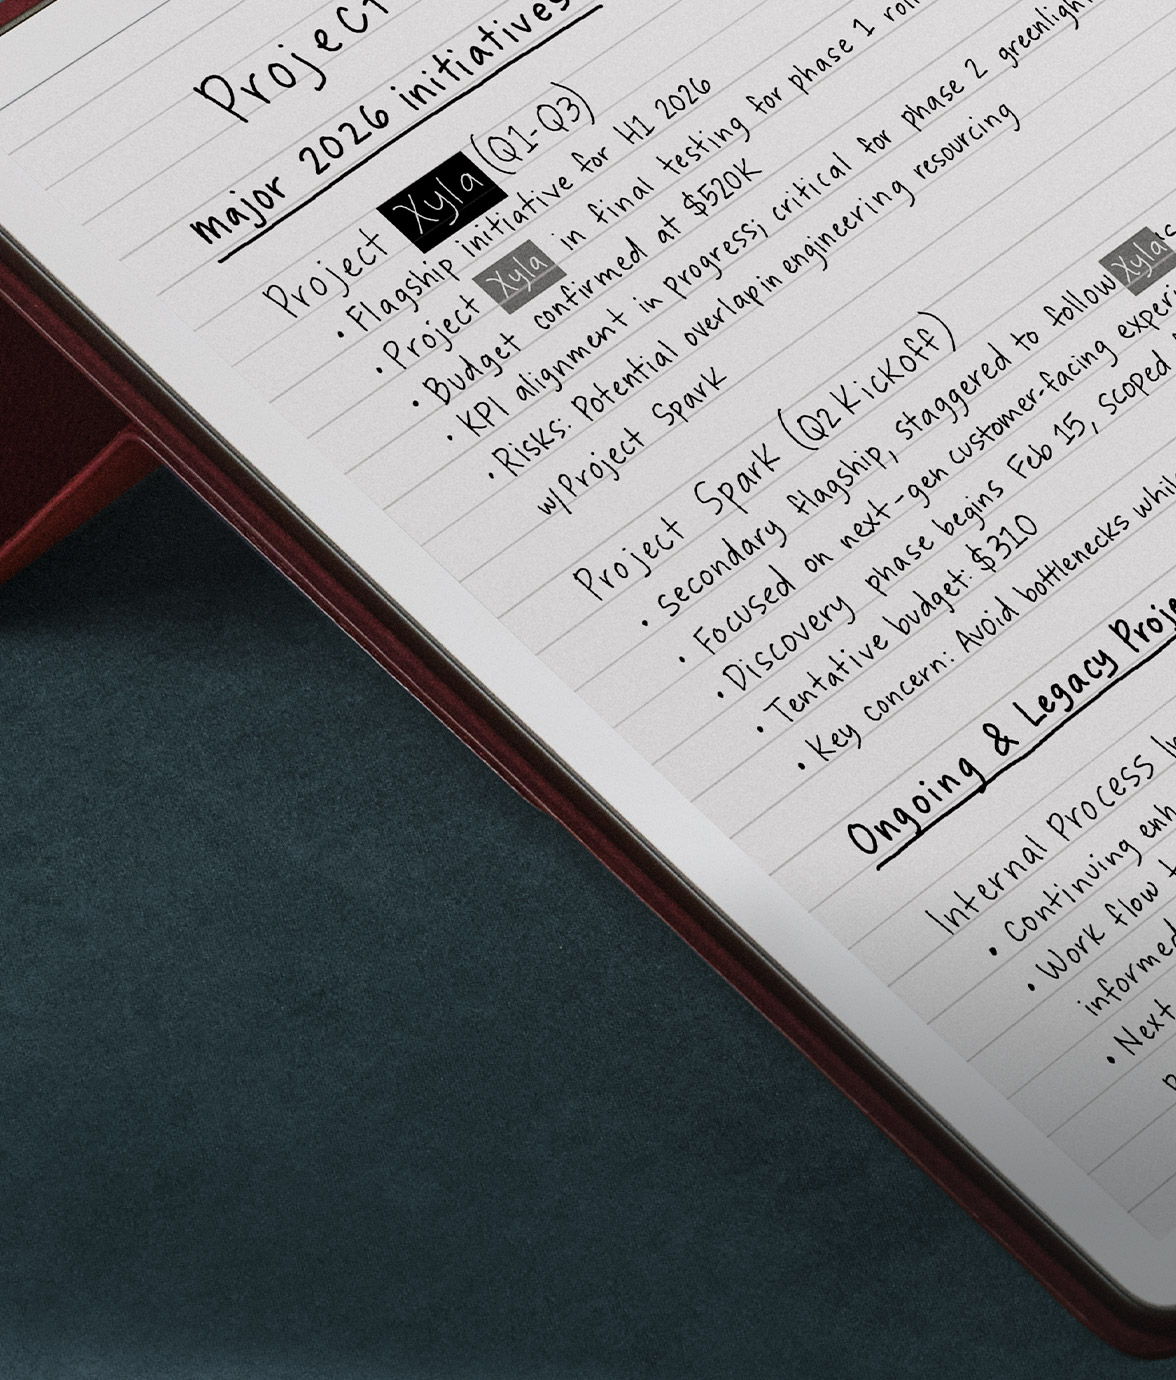 Project
major 2026 initiatives
Project Xyla (Q1-Q3)
• Flagship initiative for H1 2026
• Project Xyla in final testing for phase 1
• Budget confirmed at $520K
• KPI alignment in progress; critical for phase 2 greenlight
• Risks: Potential overlap in engineering resourcing
w/Project Spark
Project Spark (Q2 Kickoff)
• secondary flagship, staggered to follow Xyla is
• Focused on next-gen customer-facing
• Discovery phase begins Feb 15, scoped
• Tentative budget: $310
• Key concern: Avoid bottlenecks
Ongoing & Legacy
Internal Process
• Continuing
• Work flow
informed
• Next